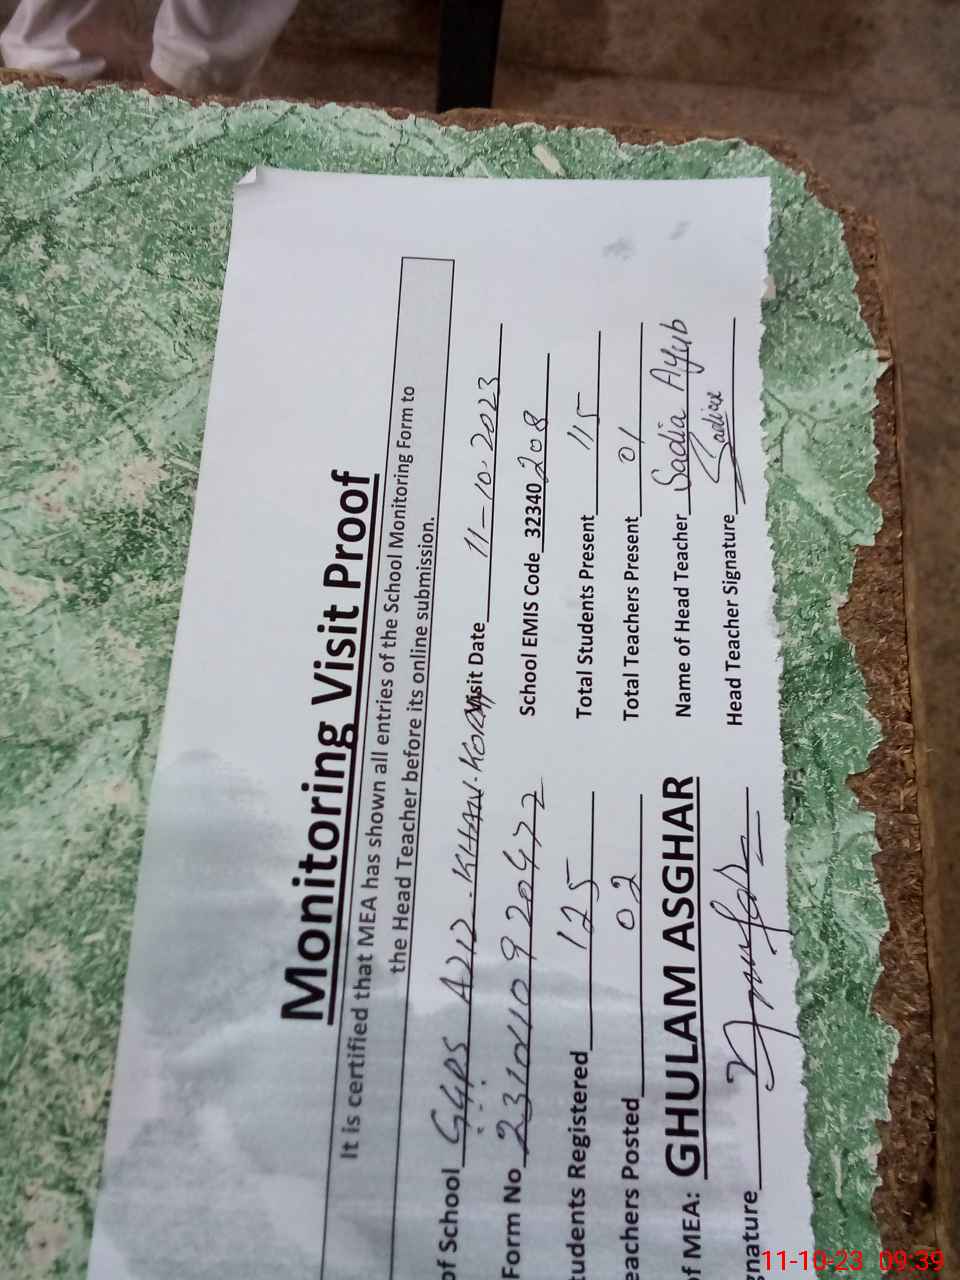 Monitoring Visit Proof
It is certified that MEA has shown all entries of the School Monitoring Form to
the Head Teacher before its online submission.
of School GGPS AZIZ KHAN KORAI Visit Date 11-10-2023
Form No School EMIS Code 32340208
tudents Registered 125 Total Students Present 115
eachers Posted 02 Total Teachers Present 01
of MEA: GHULAM ASGHAR Name of Head Teacher Sadia Ayyub
gnature Head Teacher Signature Sadia
11-10-23 09:39